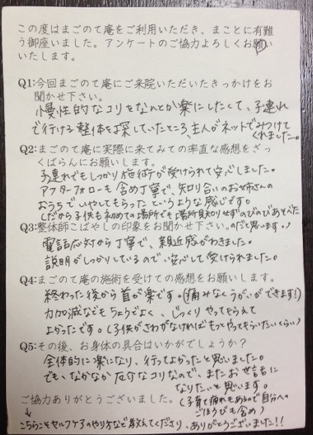 この度はまごのて庵をご利用いただき、まことに有難
う御座いました。アンケートのご協力よろしくお願い
いたします。
Q1:今回まごのて庵にご来院いただいたきっかけをお
聞かせ下さい。
慢性的なコリをなんとか楽にしたくて、子連れ
で行ける整体を探していたところ主人がネットでみつけて
くれました。
Q2:まごのて庵に実際に来てみての率直な感想をざっ
くばらんにお願いします。
子連れでもしっかり施術が受けられて安心しました。
アフターフォローも含め丁寧で、知り合いのお姉さんの
おうちでいやしてもらったというような感じです。
(だから子供も初めての場所でも場所見知りせずのびのびあそべた
のだと思います。)
Q3:整体師こばやしの印象をお聞かせ下さい。
電話応対から丁寧で、親近感がわきました。
説明がしっかりしているので、安心して受けられました。
Q4:まごのて庵の施術を受けての感想をお願いします。
終わった後から首が楽です。(痛みなくうがいができます!)
力加減などもちょうどよく、じっくりやってもらえて
よかったです。(子供がさわがなければもっとやってもらいたいくらい)
Q5:その後、お身体の具合はいかがでしょうか?
全体的に楽になり、行ってよかったと思いました。
でも、なかなかガンコなコリなので、またお世話に
なりたいと思います。
(子育て疲れもあるので自分への
ごほうびも含め)
ご協力ありがとうございました。
こちらこそセルフケアのやり方など教えてくださり、ありがとうございました!!